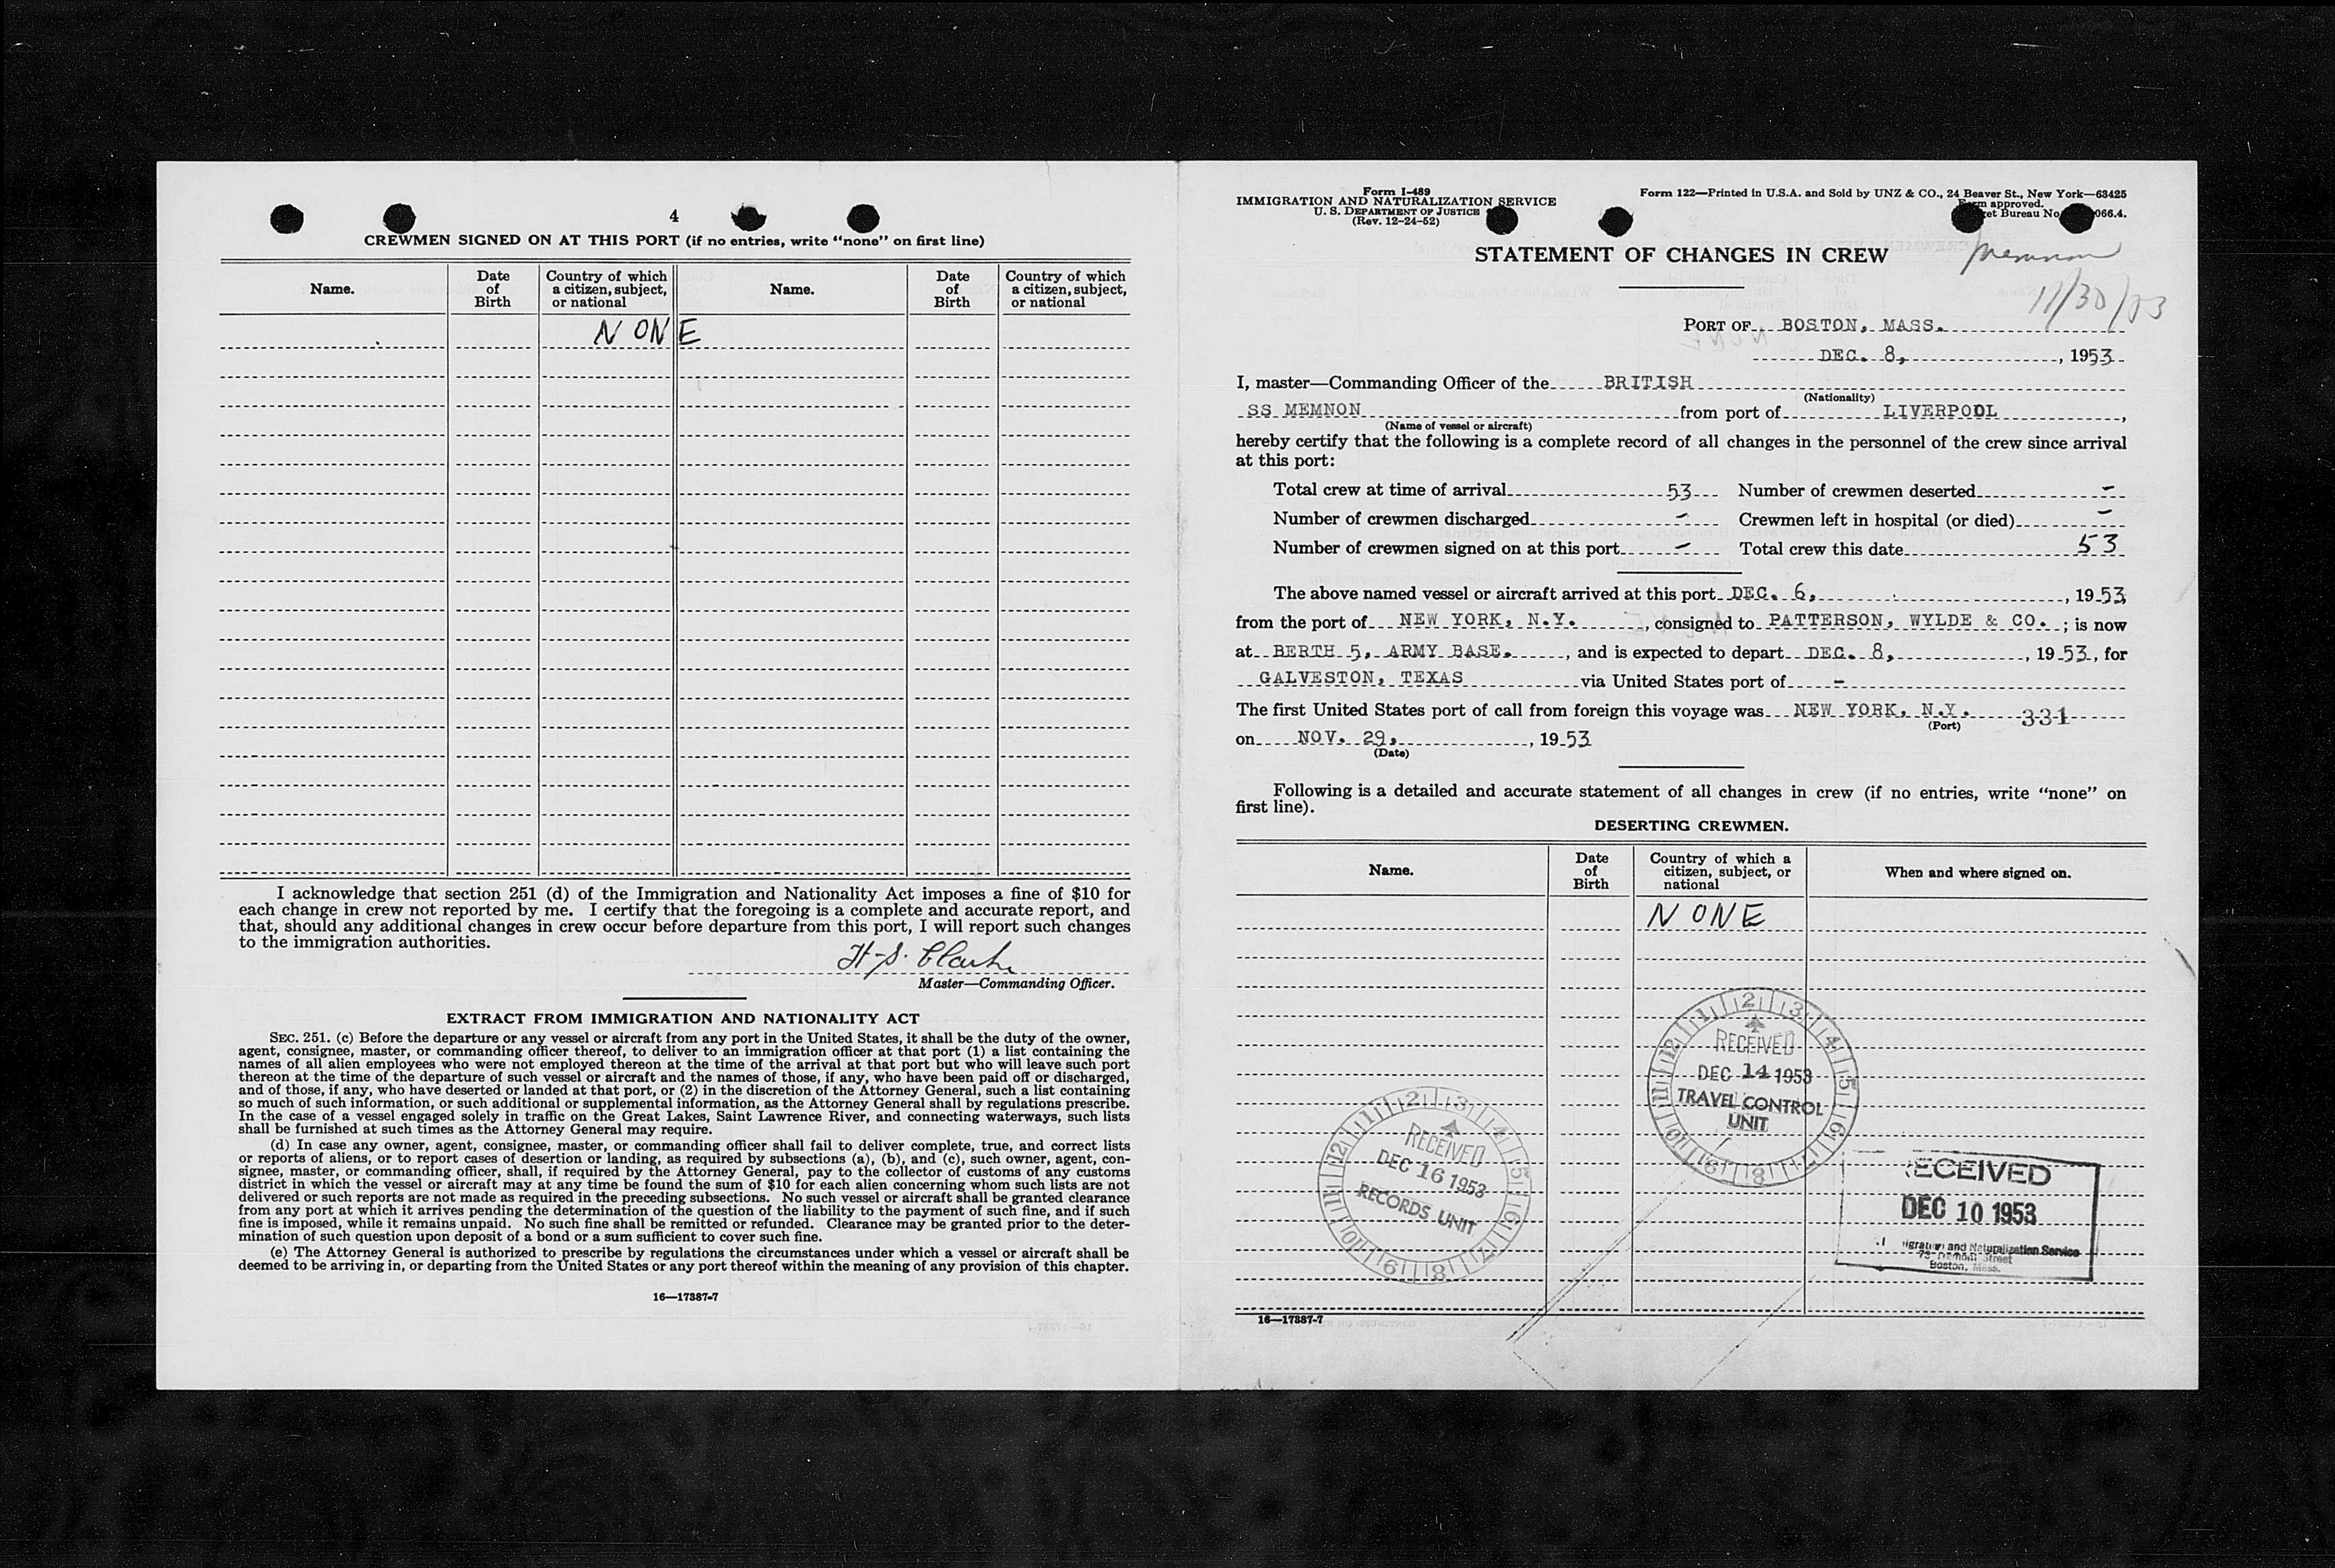 4
CREWMEN SIGNED ON AT THIS PORT (if no entries, write “none” on first line)
Name. Date of Birth Country of which a citizen, subject, or national Name. Date of Birth Country of which a citizen, subject, or national
NONE
I acknowledge that section 251 (d) of the Immigration and Nationality Act imposes a fine of $10 for
each change in crew not reported by me. I certify that the foregoing is a complete and accurate report, and
that, should any additional changes in crew occur before departure from this port, I will report such changes
to the immigration authorities.
H. S. Clarke
Master—Commanding Officer.
EXTRACT FROM IMMIGRATION AND NATIONALITY ACT
SEC. 251. (c) Before the departure or any vessel or aircraft from any port in the United States, it shall be the duty of the owner,
agent, consignee, master, or commanding officer thereof, to deliver to an immigration officer at that port (1) a list containing the
names of all alien employees who were not employed thereon at the time of the arrival at that port but who will leave such port
thereon at the time of the departure of such vessel or aircraft and the names of those, if any, who have been paid off or discharged,
and of those, if any, who have deserted or landed at that port, or (2) in the discretion of the Attorney General, such a list containing
so much of such information, or such additional or supplemental information, as the Attorney General shall by regulations prescribe.
In the case of a vessel engaged solely in traffic on the Great Lakes, Saint Lawrence River, and connecting waterways, such lists
shall be furnished at such times as the Attorney General may require.
(d) In case any owner, agent, consignee, master, or commanding officer shall fail to deliver complete, true, and correct lists
or reports of aliens, or to report cases of desertion or landing, as required by subsections (a), (b), and (c), such owner, agent, con-
signee, master, or commanding officer, shall, if required by the Attorney General, pay to the collector of customs of any customs
district in which the vessel or aircraft may at any time be found the sum of $10 for each alien concerning whom such lists are not
delivered or such reports are not made as required in the preceding subsections. No such vessel or aircraft shall be granted clearance
from any port at which it arrives pending the determination of the question of the liability to the payment of such fine, and if such
fine is imposed, while it remains unpaid. No such fine shall be remitted or refunded. Clearance may be granted prior to the deter-
mination of such question upon deposit of a bond or a sum sufficient to cover such fine.
(e) The Attorney General is authorized to prescribe by regulations the circumstances under which a vessel or aircraft shall be
deemed to be arriving in, or departing from the United States or any port thereof within the meaning of any provision of this chapter.
16—17387-7
Form I-489
IMMIGRATION AND NATURALIZATION SERVICE
U. S. DEPARTMENT OF JUSTICE
(Rev. 12-24-52)
Form 122—Printed in U.S.A. and Sold by UNZ & CO., 24 Beaver St., New York—63425
approved.
Bureau No. 066.4.
STATEMENT OF CHANGES IN CREW
Memnon
11/30/53
PORT OF BOSTON, MASS.
DEC. 8, , 1953
I, master—Commanding Officer of the BRITISH
(Nationality)
SS MEMNON from port of LIVERPOOL ,
(Name of vessel or aircraft)
hereby certify that the following is a complete record of all changes in the personnel of the crew since arrival
at this port:
Total crew at time of arrival 53 Number of crewmen deserted -
Number of crewmen discharged - Crewmen left in hospital (or died) -
Number of crewmen signed on at this port - Total crew this date 53
The above named vessel or aircraft arrived at this port DEC. 6, , 1953
from the port of NEW YORK, N.Y. , consigned to PATTERSON, WYLDE & CO. ; is now
at BERTH 5, ARMY BASE. , and is expected to depart DEC. 8, , 1953, for
GALVESTON, TEXAS via United States port of -
The first United States port of call from foreign this voyage was NEW YORK, N.Y. 331
(Port)
on NOV. 29, , 1953
(Date)
Following is a detailed and accurate statement of all changes in crew (if no entries, write “none” on
first line).
DESERTING CREWMEN.
Name. Date of Birth Country of which a citizen, subject, or national When and where signed on.
NONE
RECEIVED
DEC 14 1953
TRAVEL CONTROL
UNIT
RECEIVED
DEC 16 1953
RECORDS UNIT
RECEIVED
DEC 10 1953
and Naturalization Service
Street
Boston, Mass.
16—17387-7